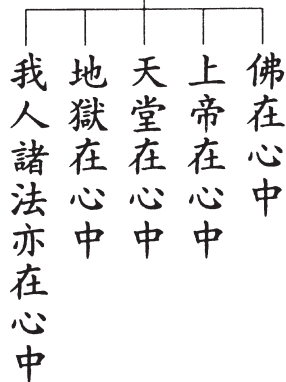 佛在心中
上帝在心中
天堂在心中
地獄在心中
我人諸法亦在心中